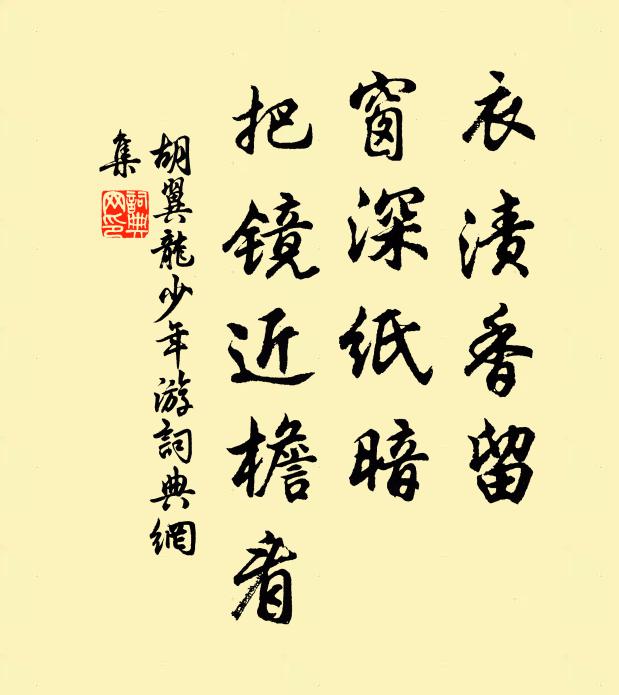 衣渍香留
窗深纸暗
把镜近檐看
胡翼龍少年游詞典網
集
詞典网印